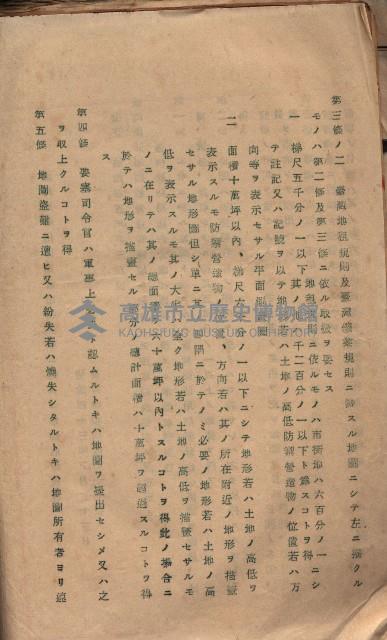 第三條ノ二　臺灣地租規則及臺灣礦業規則ニ ルスル地圖ニシテ左ニ揭クル
モノハ第二條及第三條ニ依ル取扱ヲ要セス
一　梯尺五千分ノ一以下其ノ 地租規則ニ依ルモノハ市街地ハ六百分ノ一 千二百分ノ一以下ト爲スコトヲ得 ニシ
テ註記又ハ記號ヲ以テ地 若ハ土地ノ高低防禦營造物ノ位置若ハ方
向等ヲ表示セサル平面 圖
二　面積十萬坪以內、梯尺 分ノ一以下ニシテ地形若ハ土地ノ高低ヲ
表示スルモ防禦營造物 置、方向若ハ其ノ所在附近ノ地形ヲ描畫
セサル地形圖但シ單ニ其 局部ニ於テノミ必要ノ地形若ハ土地ノ高
低ヲ表示スルモ其ノ大 全ク地形若ハ土地ノ高低ヲ描畫セサルモ
ノニ在リテハ其ノ總面積 六十萬坪以內トスルコトヲ得此ノ場合ニ
於テハ地形ヲ描畫セル 分 總計面積ハ十萬坪ヲ超過スルコトヲ得
ス
第四條　要塞司令官ハ軍事上 ト認ムルトキハ地圖ヲ提出セシメ又ハ之
ヲ取上クルコトヲ得
第五條　地圖盜難ニ遭ヒ又ハ紛失若ハ燒失シタルトキハ地圖所有者ヨリ
高雄市立歷史博物館
KAOHSIUNG MUSEUM OF HISTORY